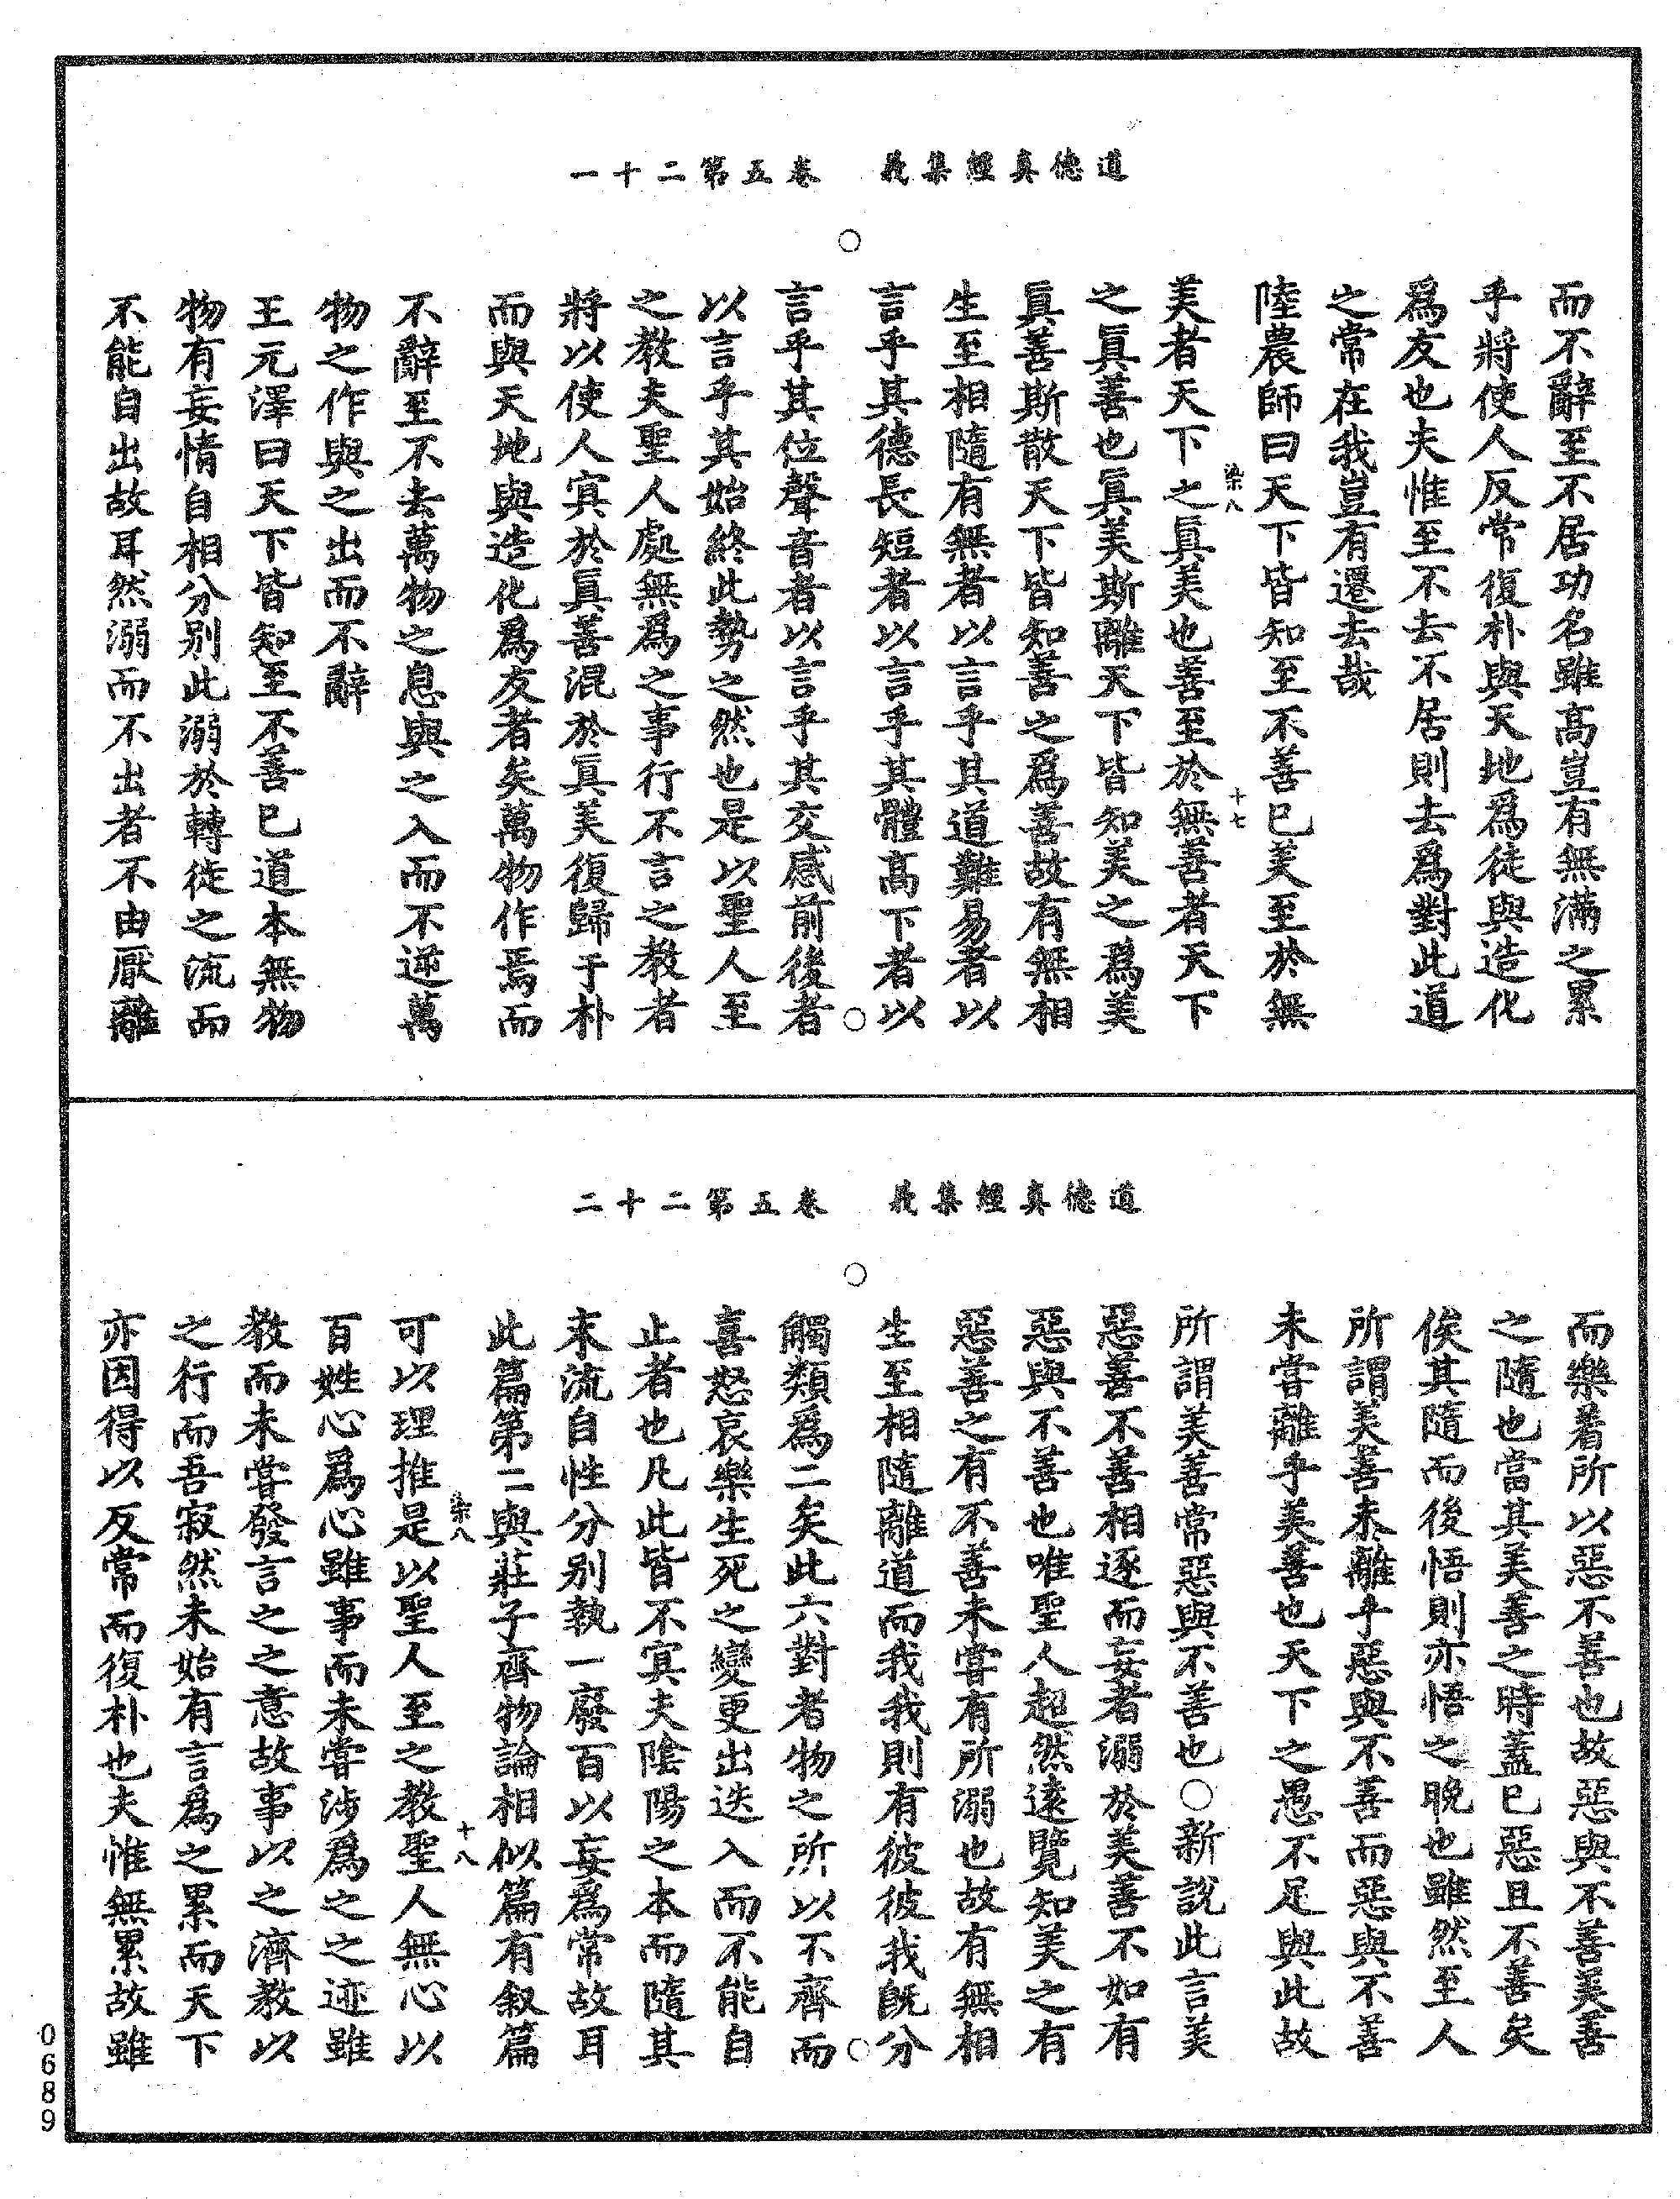 道德真經集義　卷五第二十一
而不辭至不居功名雖高豈有無滿之累
乎將使人反常復朴與天地爲徒與造化
爲友也夫惟至不去不居則去爲對此道
之常在我豈有還去哉
陸農師曰天下皆知至不善已美至於無
美者天下之眞美也善至於無善者天下
之眞善也眞美斯離天下皆知美之爲美
眞善斯散天下皆知善之爲善故有無相
生至相隨有無者以言乎其道難易者以
言乎其德長短者以言乎其體高下者以
言乎其位聲音者以言乎其交感前後者
以言乎其始終此勢之然也是以聖人至
之教夫聖人處無爲之事行不言之教者
將以使人寘於眞善混於眞美復歸于朴
而與天地與造化爲友者矣萬物作焉而
不辭至不去萬物之息與之入而不逆萬
物之作與之出而不辭
王元澤曰天下皆知至不善已道本無物
物有妄情自相分别此溺於轉徙之流而
不能自出故耳然溺而不出者不由厭離
染八
十七
道德真經集義　卷五第二十二
而樂着所以惡不善也故惡與不善美善
之隨也當其美善之時蓋已惡且不善矣
俟其隨而後悟則亦悟之晚也雖然至人
所謂美善未離乎惡與不善而惡與不善
未嘗離乎美善也天下之愚不足與此故
所謂美善常惡與不善也○新說此言美
惡善不善相逐而妄者溺於美善不如有
惡與不善也唯聖人超然遠覽知美之有
惡善之有不善未嘗有所溺也故有無相
生至相隨離道而我我則有彼彼我既分
觸類爲二矣此六對者物之所以不齊而
喜怒哀樂生死之變更出迭入而不能自
止者也凡此皆不寘夫陰陽之本而隨其
末流自性分别執一廢百以妄爲常故耳
此篇第二與莊子齊物論相似篇有叙篇
可以理推是以聖人至之教聖人無心以
百姓心爲心雖事而未嘗涉爲之之迹雖
教而未嘗發言之之意故事以之濟教以
之行而吾寂然未始有言爲之累而天下
亦因得以反常而復朴也夫惟無累故雖
染八
十八
0689